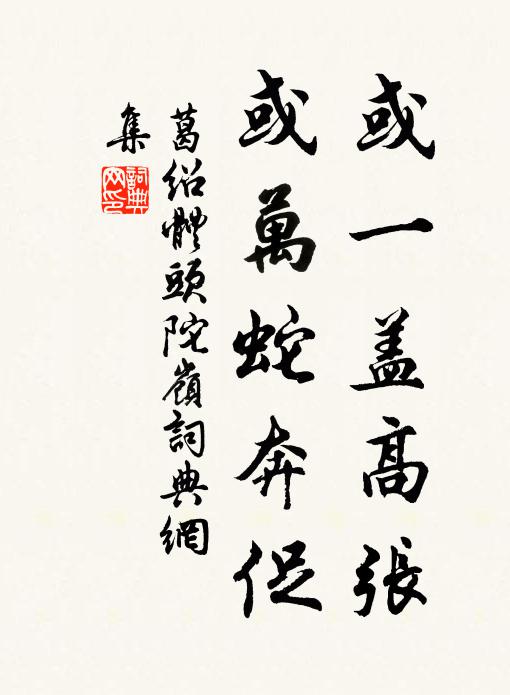 或一盖高張
或萬蛇奔促
葛绍體頭陀嶺詞典網
集
詞典
网印